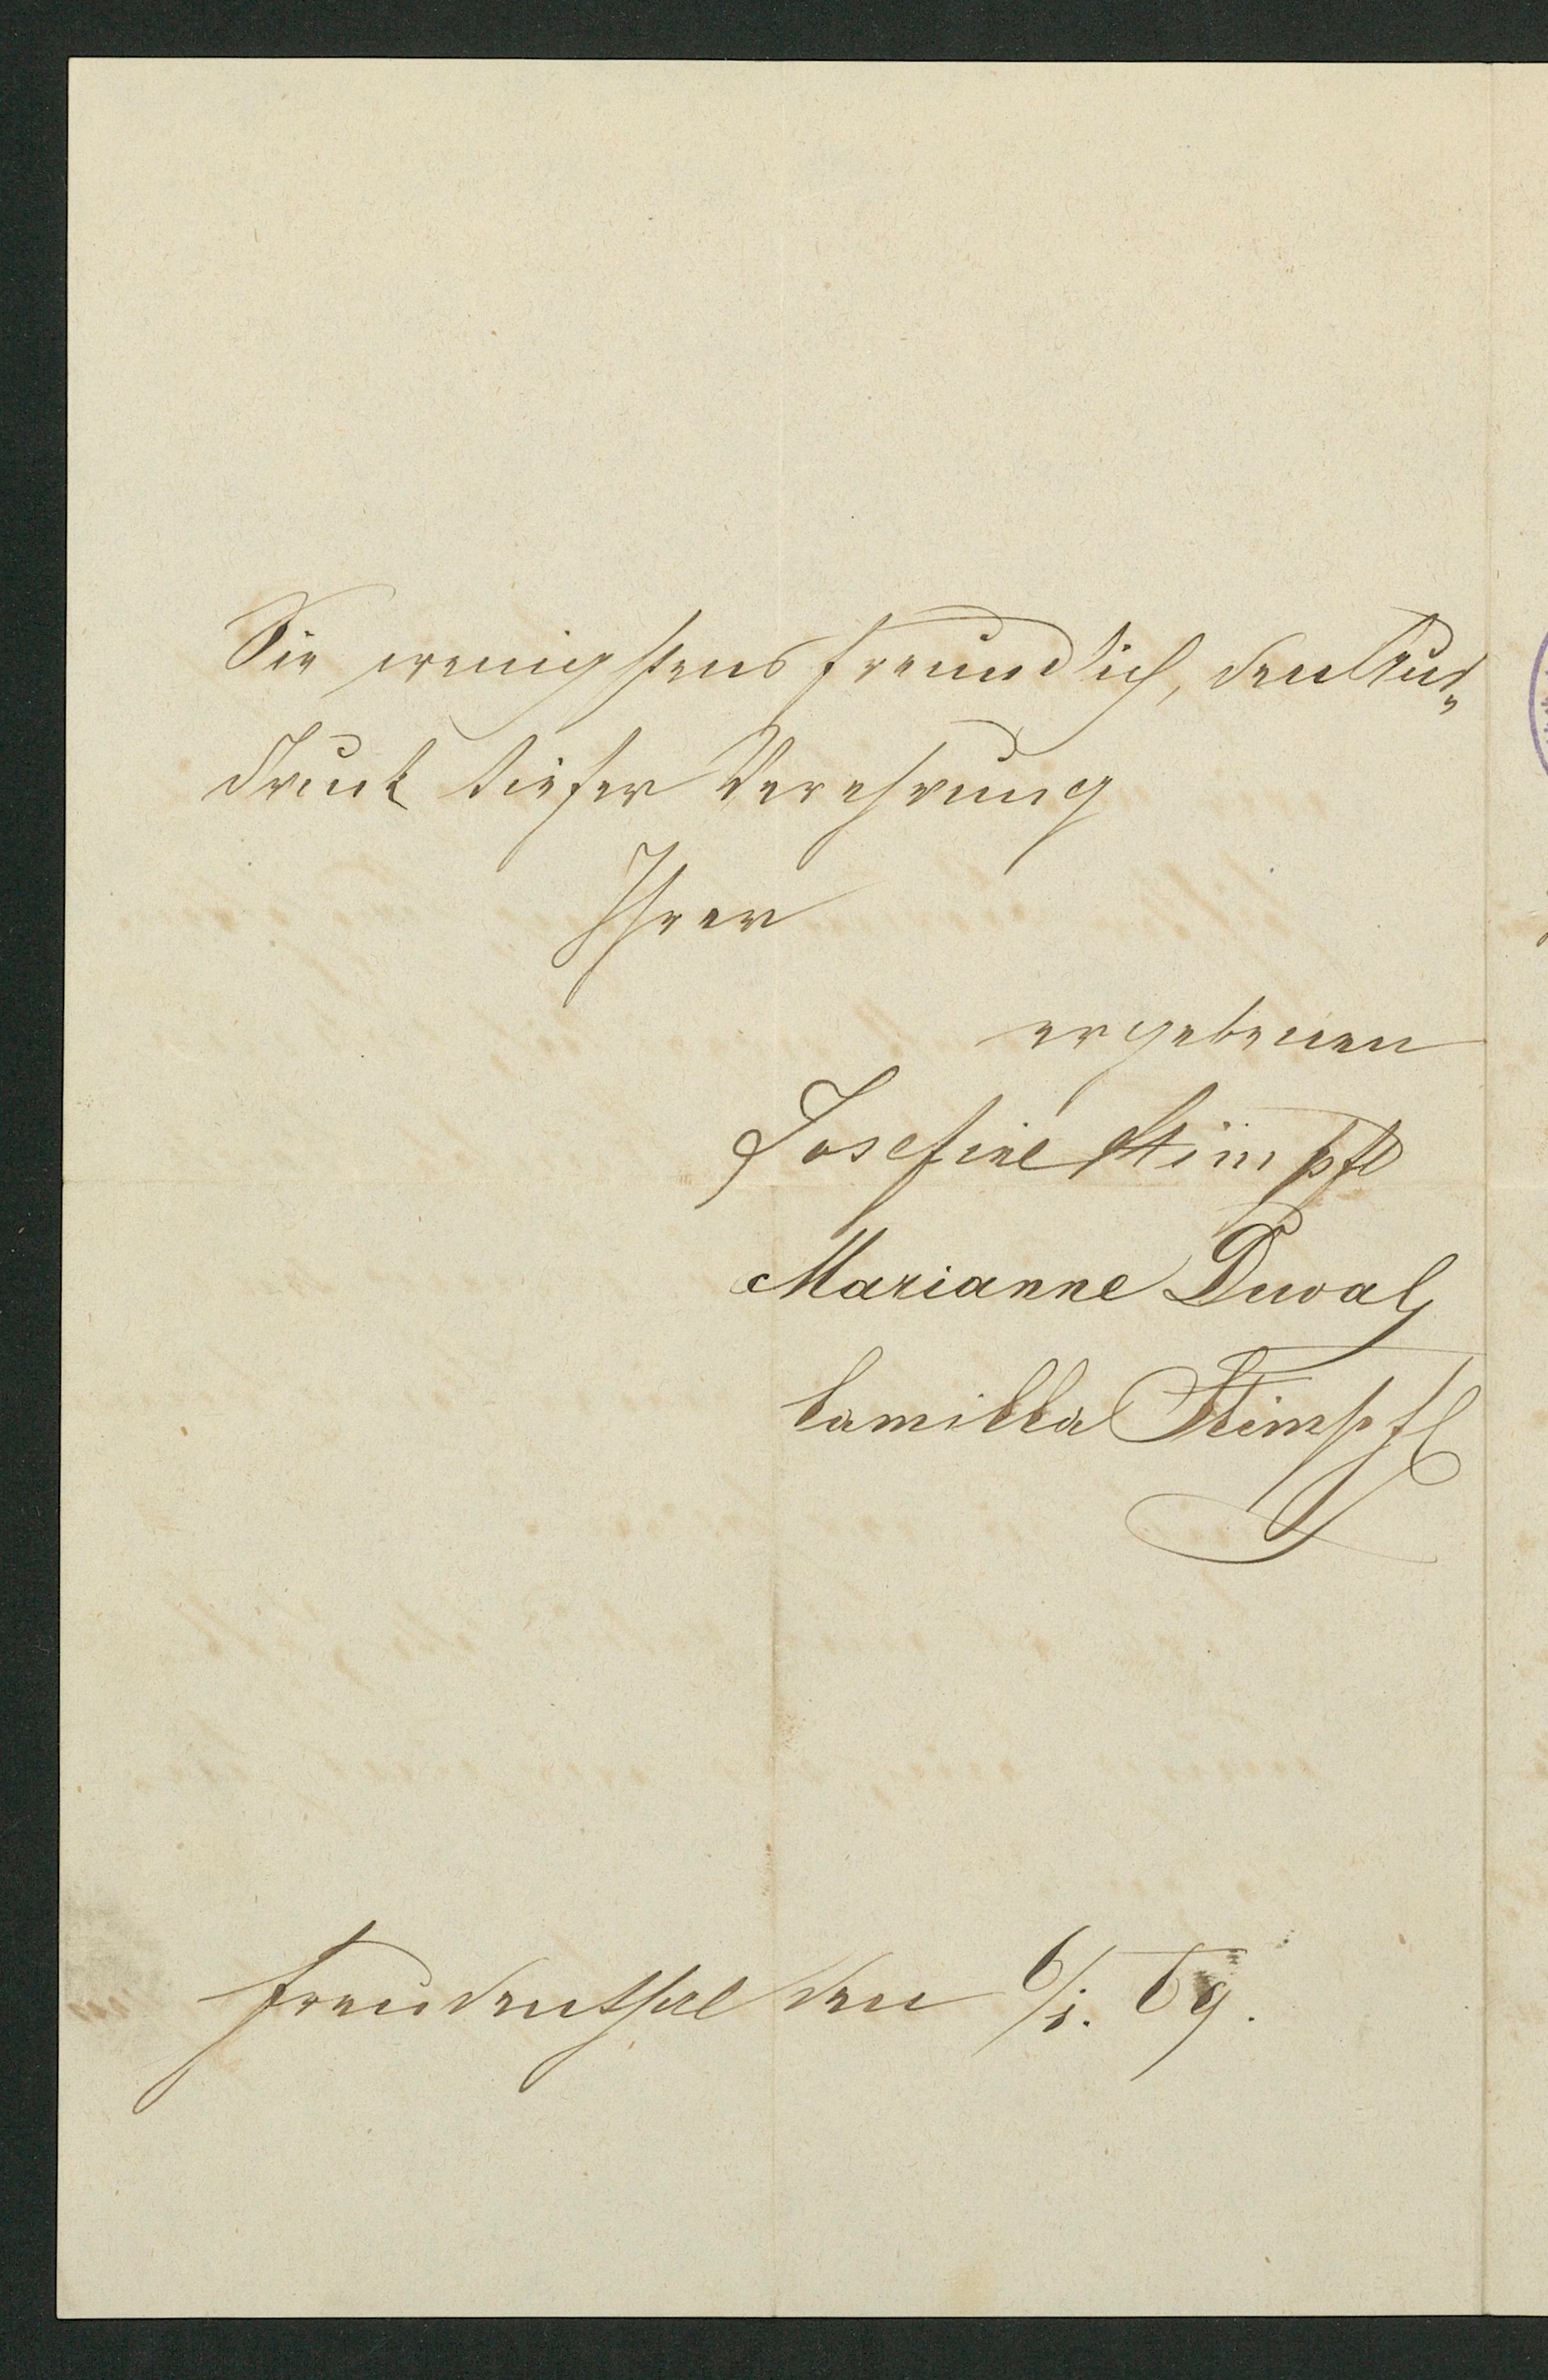 Sie wenigstens freundlich, den Aus„
druck tiefer Verehrung
Ihrer
ergebenen
Josefine Stimpfl
Marianne Duval
Camilla Stimpfl
Freudenthal den 6/1. 69.